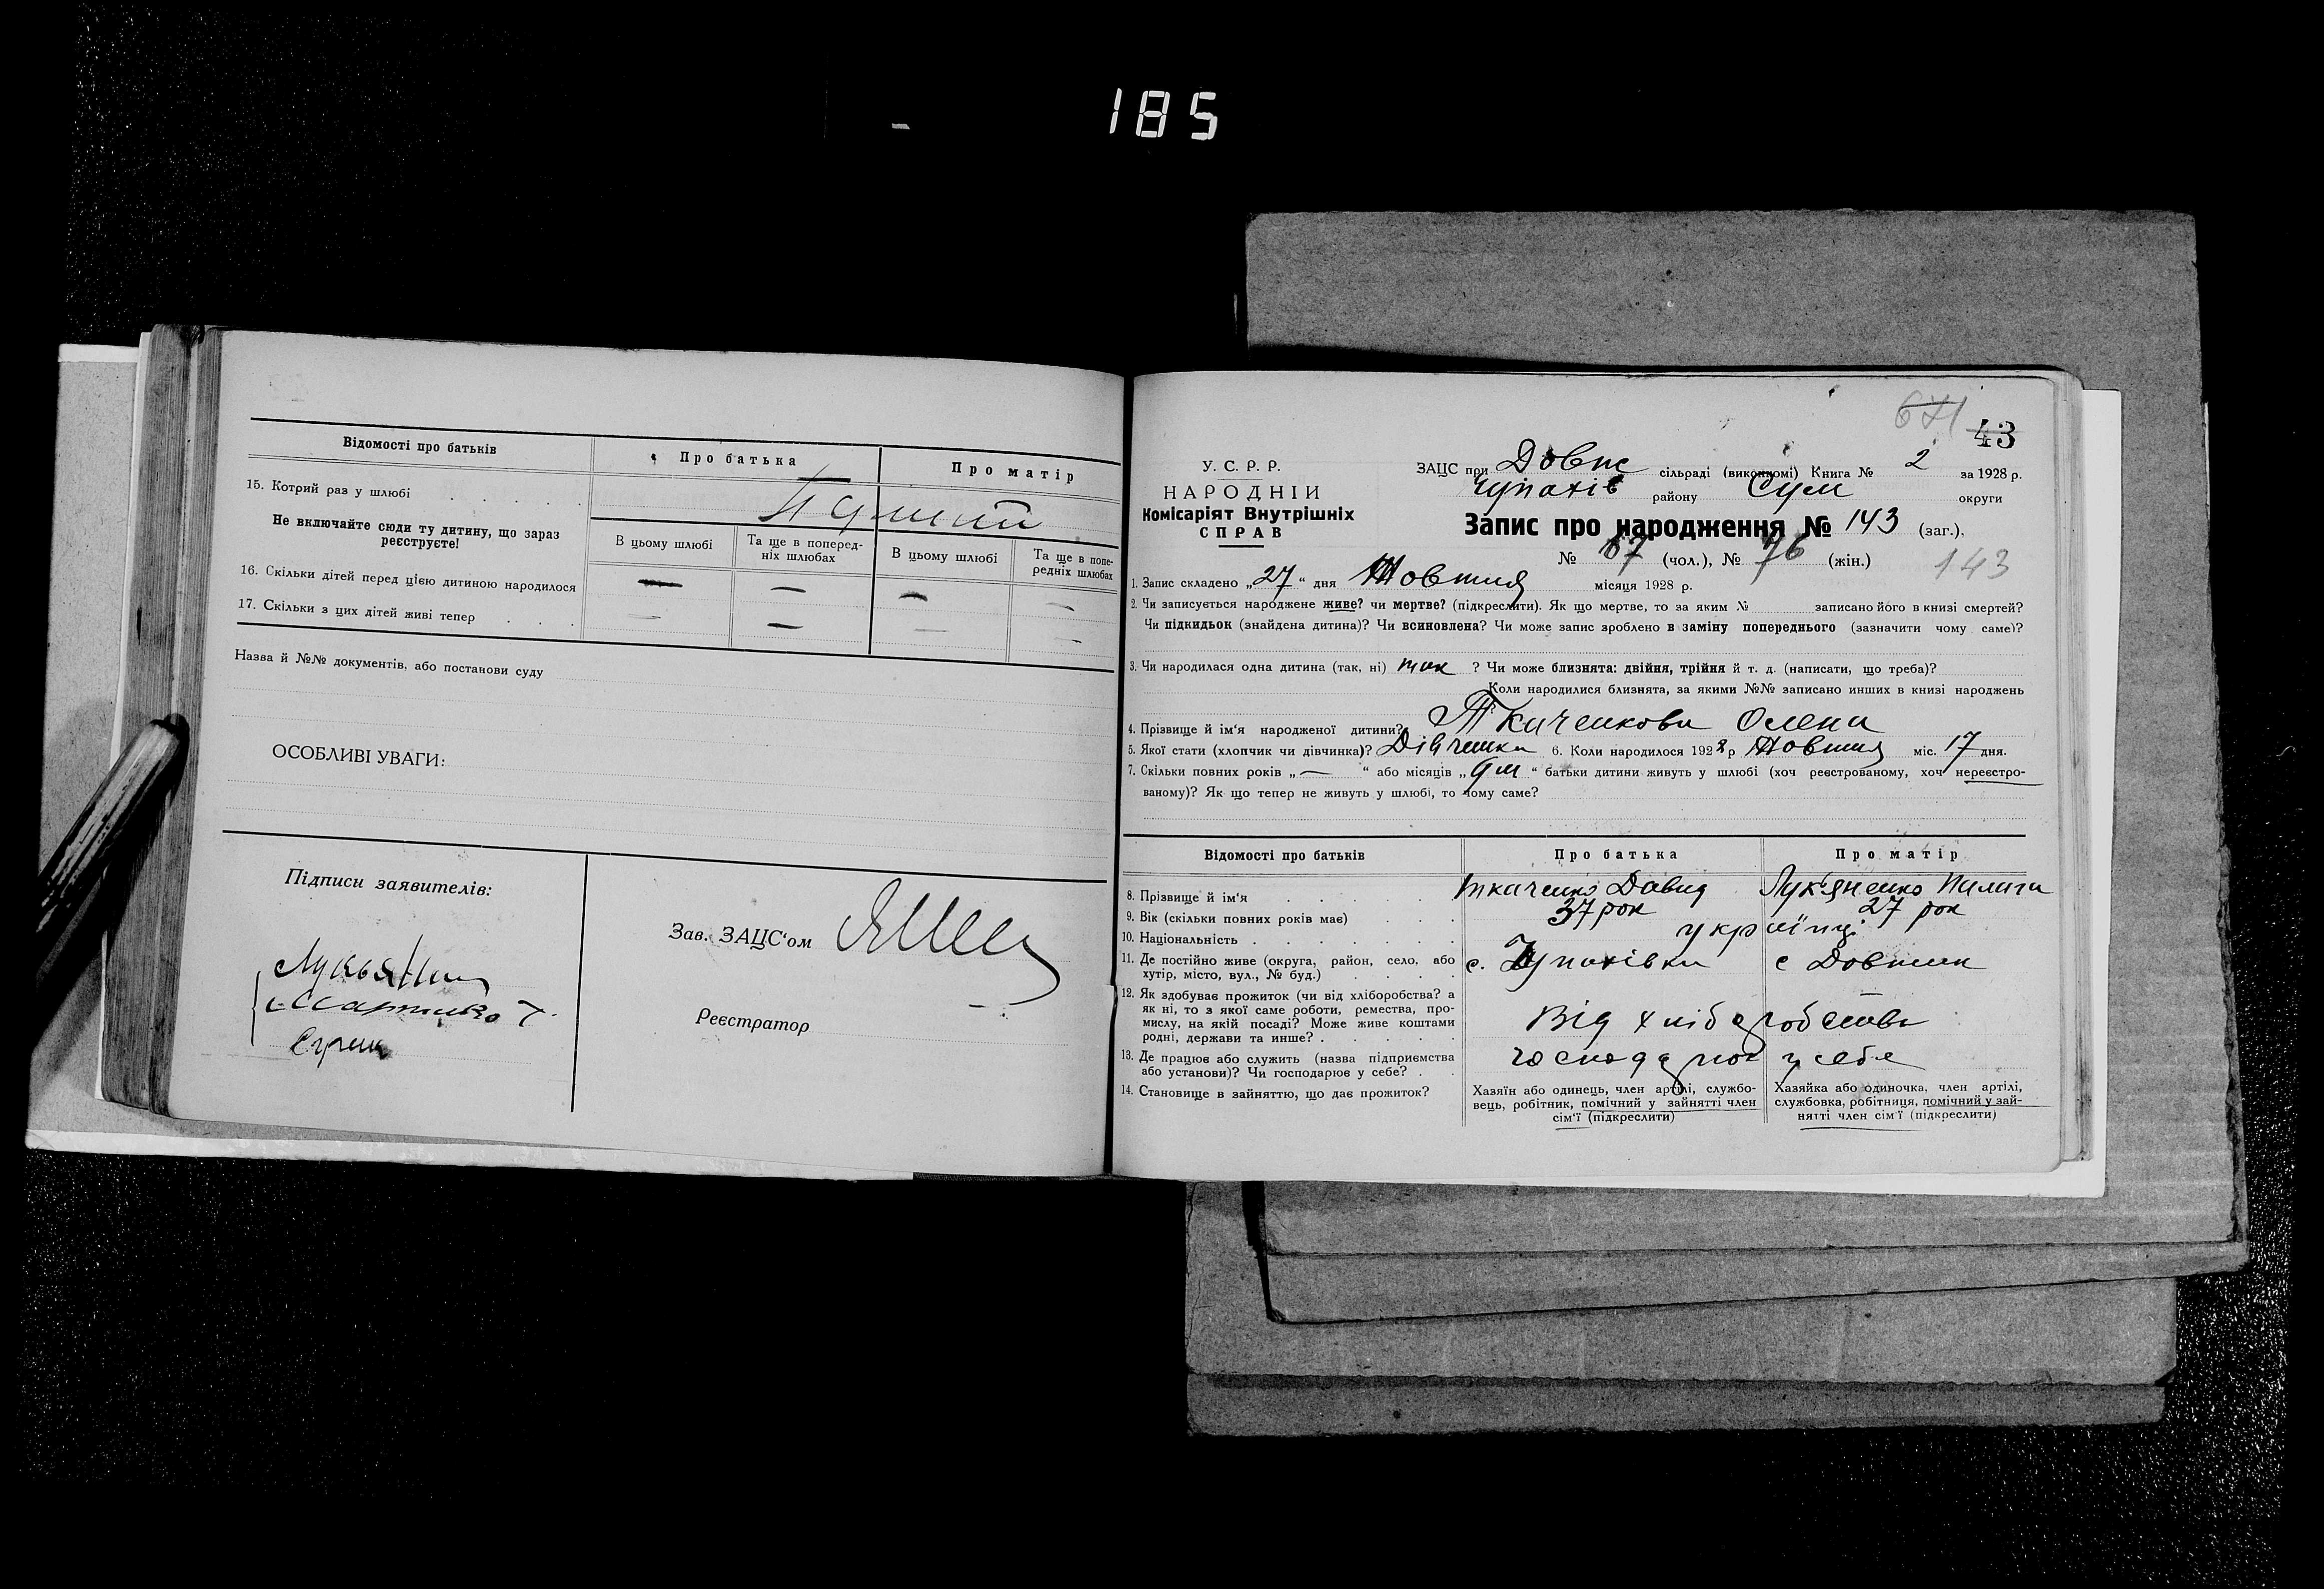 185
Відомості про батьків
Про батька
Про матір
15. Котрий раз у шлюбі
Не включайте сюди ту дитину, що зараз
реєструєте!
В цьому шлюбі
Та ще в поперед-
ніх шлюбах
В цьому шлюбі
Та ще в попе-
редніх шлюбах
16. Скільки дітей перед цією дитиною народилося
— — — —
17. Скільки з цих дітей живі тепер
— — — —
Назва й №№ документів, або постанови суду
ОСОБЛИВІ УВАГИ:
Підписи заявителів:
Зав. ЗАЦС'ом
Реєстратор
671
43
У. С. Р. Р.
НАРОДНІЙ
Комісаріят Внутрішніх
СПРАВ
ЗАЦС при Довж сільраді (виконкомі) Книга № 2 за 1928 р.
Чупахів району Сум округи
Запис про народження № 143 (заг.),
№ 67 (чол.), № 76 (жін.)
143
1. Запис складено „27“ дня Жовтня місяця 1928 р.
2. Чи записується народжене живе? чи мертве? (підкреслити). Як що мертве, то за яким № записано його в книзі смертей?
Чи підкидьок (знайдена дитина)? Чи всиновлена? Чи може запис зроблено в заміну попереднього (зазначити чому саме)?
3. Чи народилася одна дитина (так, ні) так ? Чи може близнята: двійня, трійня й т. д. (написати, що треба)?
Коли народилися близнята, за якими №№ записано инших в книзі народжень
4. Прізвище й ім'я народженої дитини? Ткаченкова Олена
5. Якої стати (хлопчик чи дівчинка)? Дівчинка 6. Коли народилося 1928 р Жовтня міс. 17 дня.
7. Скільки повних років „—“ або місяців „9 м“ батьки дитини живуть у шлюбі (хоч реєстрованому, хоч нереєстро-
ваному)? Як що тепер не живуть у шлюбі, то чому саме?
Відомості про батьків
Про батька
Про матір
8. Прізвище й ім'я
Ткаченко Давид
Лук'яненко
9. Вік (скільки повних років має)
37 рок
27 рок
10. Національність
українці
11. Де постійно живе (округа, район, село, або
хутір, місто, вул., № буд.)
с. Чупахівка
с Довжик
12. Як здобуває прожиток (чи від хліборобства? а
як ні, то з якої саме роботи, ремества, про-
мислу, на якій посаді? Може живе коштами
родні, держави та инше?
Від хліборобства
13. Де працює або служить (назва підприємства
або установи)? Чи господарює у себе?
у себе
14. Становище в зайняттю, що дає прожиток?
Хазяїн або одинець, член артілі, службо-
вець, робітник, помічний у зайнятті член
сім'ї (підкреслити)
Хазяйка або одиночка, член артілі,
службовка, робітниця, помічний у зай-
нятті член сім'ї (підкреслити)